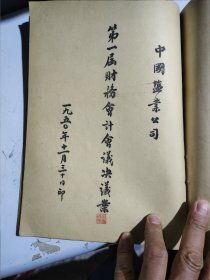 中國蓖業公司
第一屆財務會計會議決議案
一九五〇年十一月三十日印